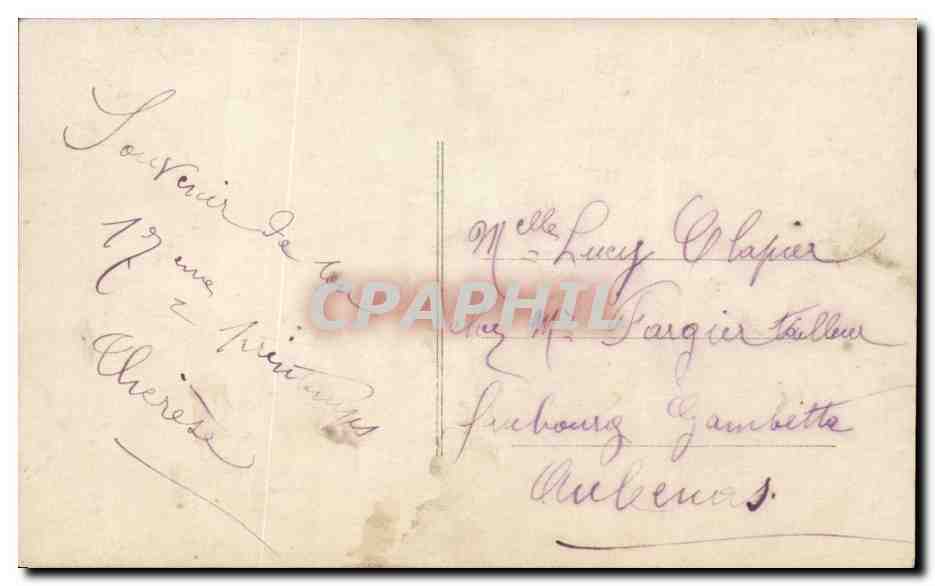 Souvenir de
17 eme printemps
Thérèse
Melle Lucy Clapier
chez Mr Fargier tailleur
faubourg Gambetta
Aubenas.
CPAPHIL